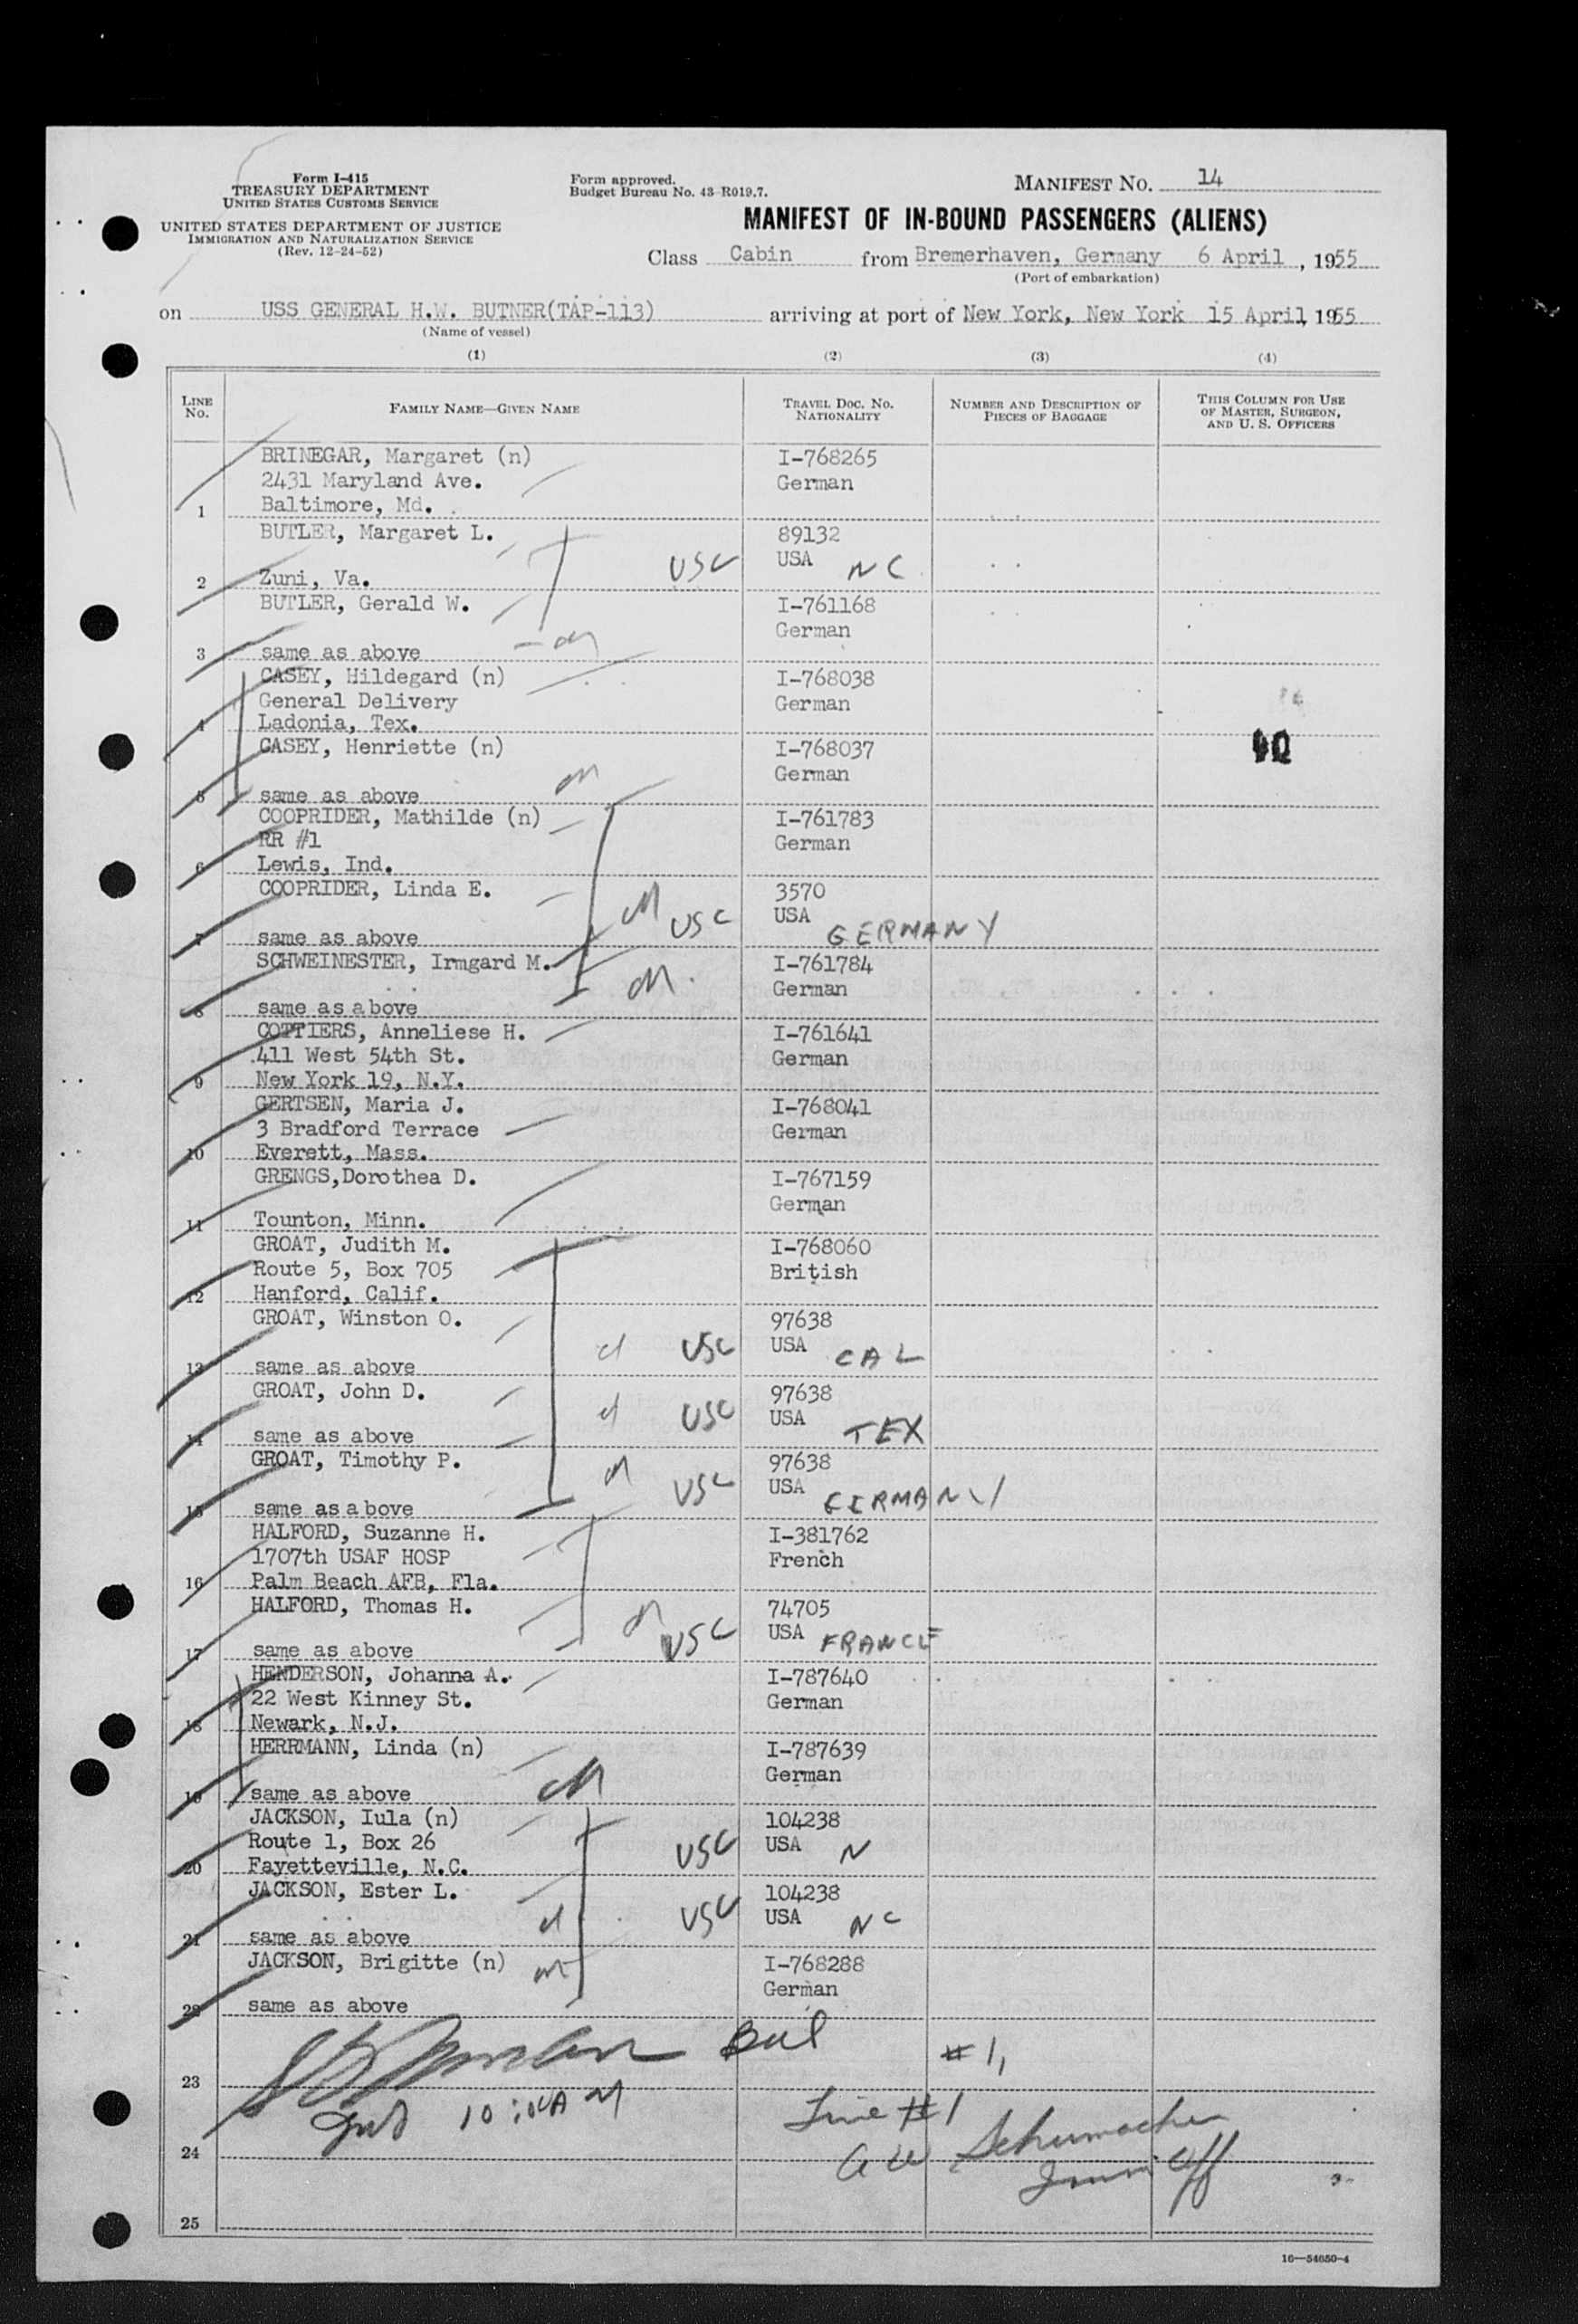 Form I-415
TREASURY DEPARTMENT
UNITED STATES CUSTOMS SERVICE
UNITED STATES DEPARTMENT OF JUSTICE
IMMIGRATION AND NATURALIZATION SERVICE
(Rev. 12-24-52)
Form approved.
Budget Bureau No. 43-R019.7.
MANIFEST NO. 14
MANIFEST OF IN-BOUND PASSENGERS (ALIENS)
Class Cabin from Bremerhaven, Germany 6 April, 1955
(Port of embarkation)
on USS GENERAL H.W. BUTNER(TAP-113) arriving at port of New York, New York 15 April, 1955
(Name of vessel)
(1) (2) (3) (4)
LINE NO. FAMILY NAME—GIVEN NAME TRAVEL DOC. NO. NATIONALITY NUMBER AND DESCRIPTION OF PIECES OF BAGGAGE THIS COLUMN FOR USE OF MASTER, SURGEON, AND U. S. OFFICERS
BRINEGAR, Margaret (n) I-768265
2431 Maryland Ave. German
1 Baltimore, Md.
BUTLER, Margaret L. 89132
USC USA NC
2 Zuni, Va.
BUTLER, Gerald W. I-761168
German
3 same as above
CASEY, Hildegard (n) I-768038
General Delivery German
4 Ladonia, Tex.
CASEY, Henriette (n) I-768037
German
5 same as above
COOPRIDER, Mathilde (n) I-761783
RR #1 German
6 Lewis, Ind.
COOPRIDER, Linda E. 3570
USC USA GERMANY
7 same as above
SCHWEINESTER, Irmgard M. I-761784
German
8 same as above
COTTIERS, Anneliese H. I-761641
411 West 54th St. German
9 New York 19, N.Y.
GERTSEN, Maria J. I-768041
3 Bradford Terrace German
10 Everett, Mass.
GRENGS,Dorothea D. I-767159
German
11 Tounton, Minn.
GROAT, Judith M. I-768060
Route 5, Box 705 British
12 Hanford, Calif.
GROAT, Winston O. 97638
USC USA CAL
13 same as above
GROAT, John D. 97638
USC USA TEX
14 same as above
GROAT, Timothy P. 97638
USC USA GERMANY
15 same as above
HALFORD, Suzanne H. I-381762
1707th USAF HOSP French
16 Palm Beach AFB, Fla.
HALFORD, Thomas H. 74705
USC USA FRANCE
17 same as above
HENDERSON, Johanna A. I-787640
22 West Kinney St. German
18 Newark, N.J.
HERRMANN, Linda (n) I-787639
German
19 same as above
JACKSON, Iula (n) 104238
Route 1, Box 26 USC USA N
20 Fayetteville, N.C.
JACKSON, Ester L. 104238
USC USA NC
21 same as above
JACKSON, Brigitte (n) I-768288
German
22 same as above
#1,
23
Line #1
Schumacher
24
Imm Off
25
16—54650-4